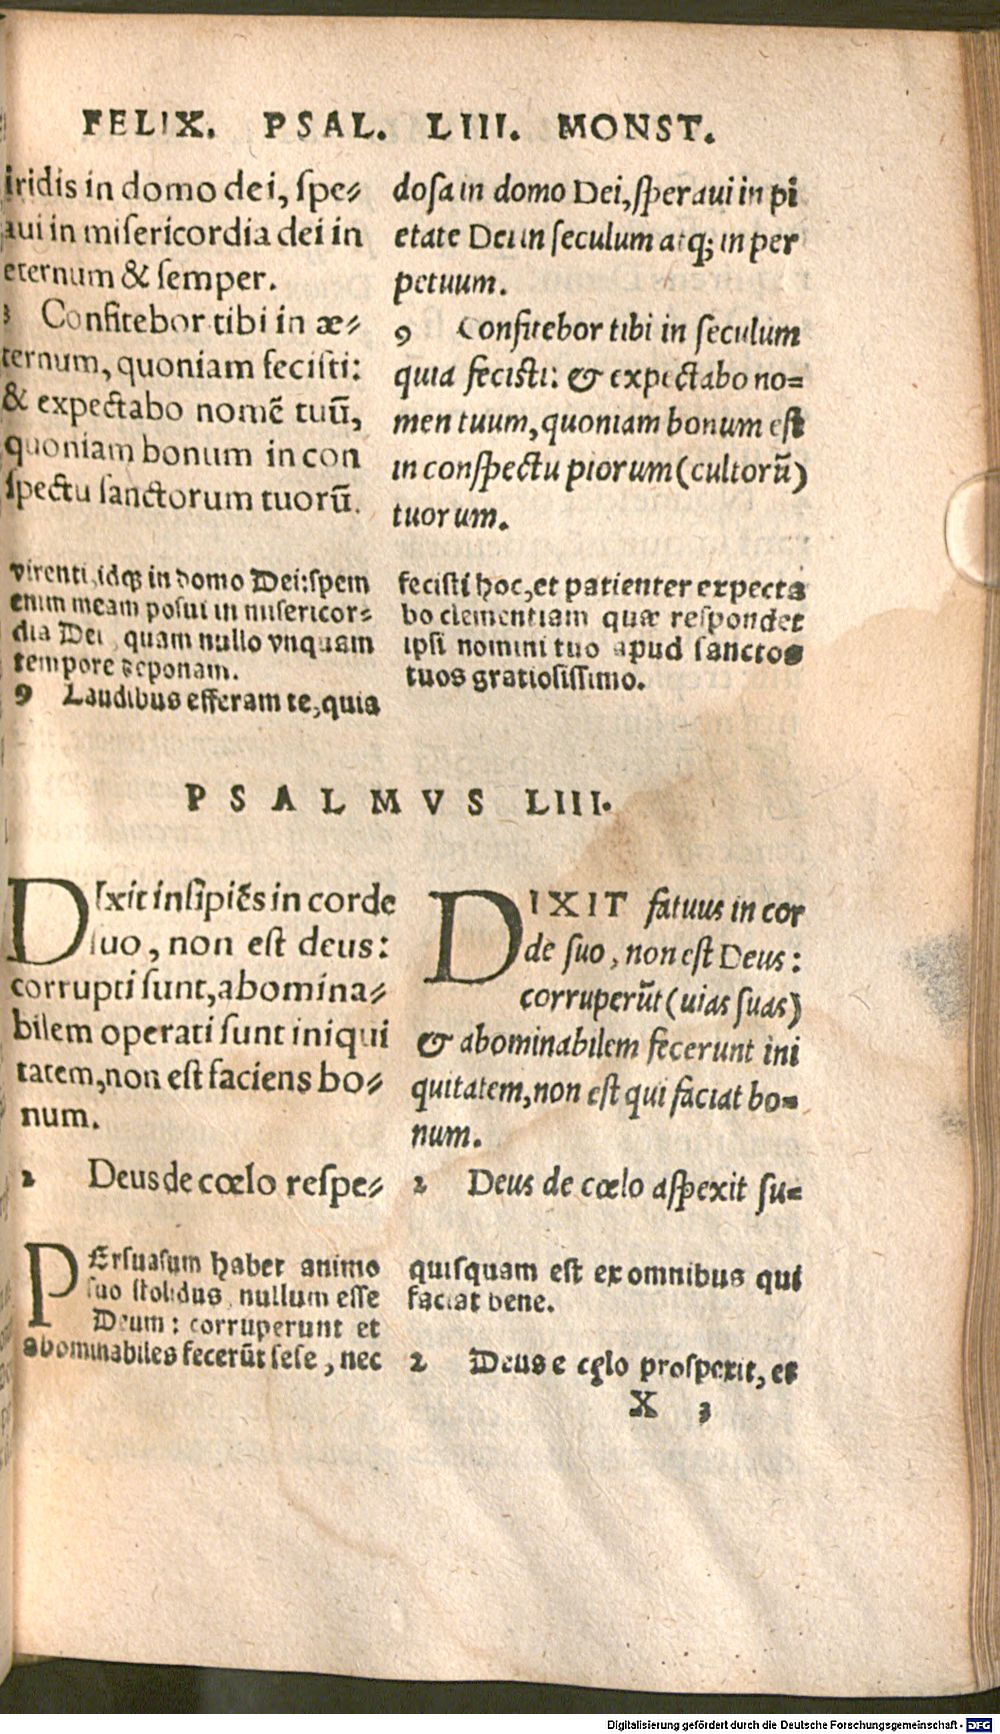 FELIX. PSAL. LIII. MONST.
iridis in domo dei, spe⸗
aui in misericordia dei in
eternum & semper.
Confitebor tibi in æ⸗
ternum, quoniam fecisti:
& expectabo nomē tuū,
quoniam bonum in con
spectu sanctorum tuorū.
dosa in domo Dei, speraui in pi
etate Dei in seculum atq; in per
petuum.
9 Confitebor tibi in seculum
quia fecisti: & expectabo no=
men tuum, quoniam bonum est
in conspectu piorum (cultorū)
tuorum.
virenti, idq; in domo Dei: spem
enim meam posui in misericor⸗
dia Dei, quam nullo vnquam
tempore deponam.
9 Laudibus efferam te, quia
fecisti hoc, et patienter expecta
bo clementiam quæ respondet
ipsi nomini tuo apud sanctos
tuos gratiosissimo.
PSALMVS LIII.
DIxit insipiēs in corde
suo, non est deus:
corrupti sunt, abomina⸗
bilem operati sunt iniqui
tatem, non est faciens bo⸗
num.
2 Deus de cœlo respe⸗
DIXIT fatuus in cor
de suo, non est Deus:
corruperūt (uias suas)
& abominabilem fecerunt ini
quitatem, non est qui faciat bo=
num.
2 Deus de cœlo aspexit su=
PErsuasum habet animo
suo stolidus, nullum esse
Deum: corruperunt et
abominabiles fecerūt sese, nec
quisquam est ex omnibus qui
faciat bene.
2 Deus e cęlo prospexit, et
X 3
Digitalisierung gefördert durch die Deutsche Forschungsgemeinschaft - DFG